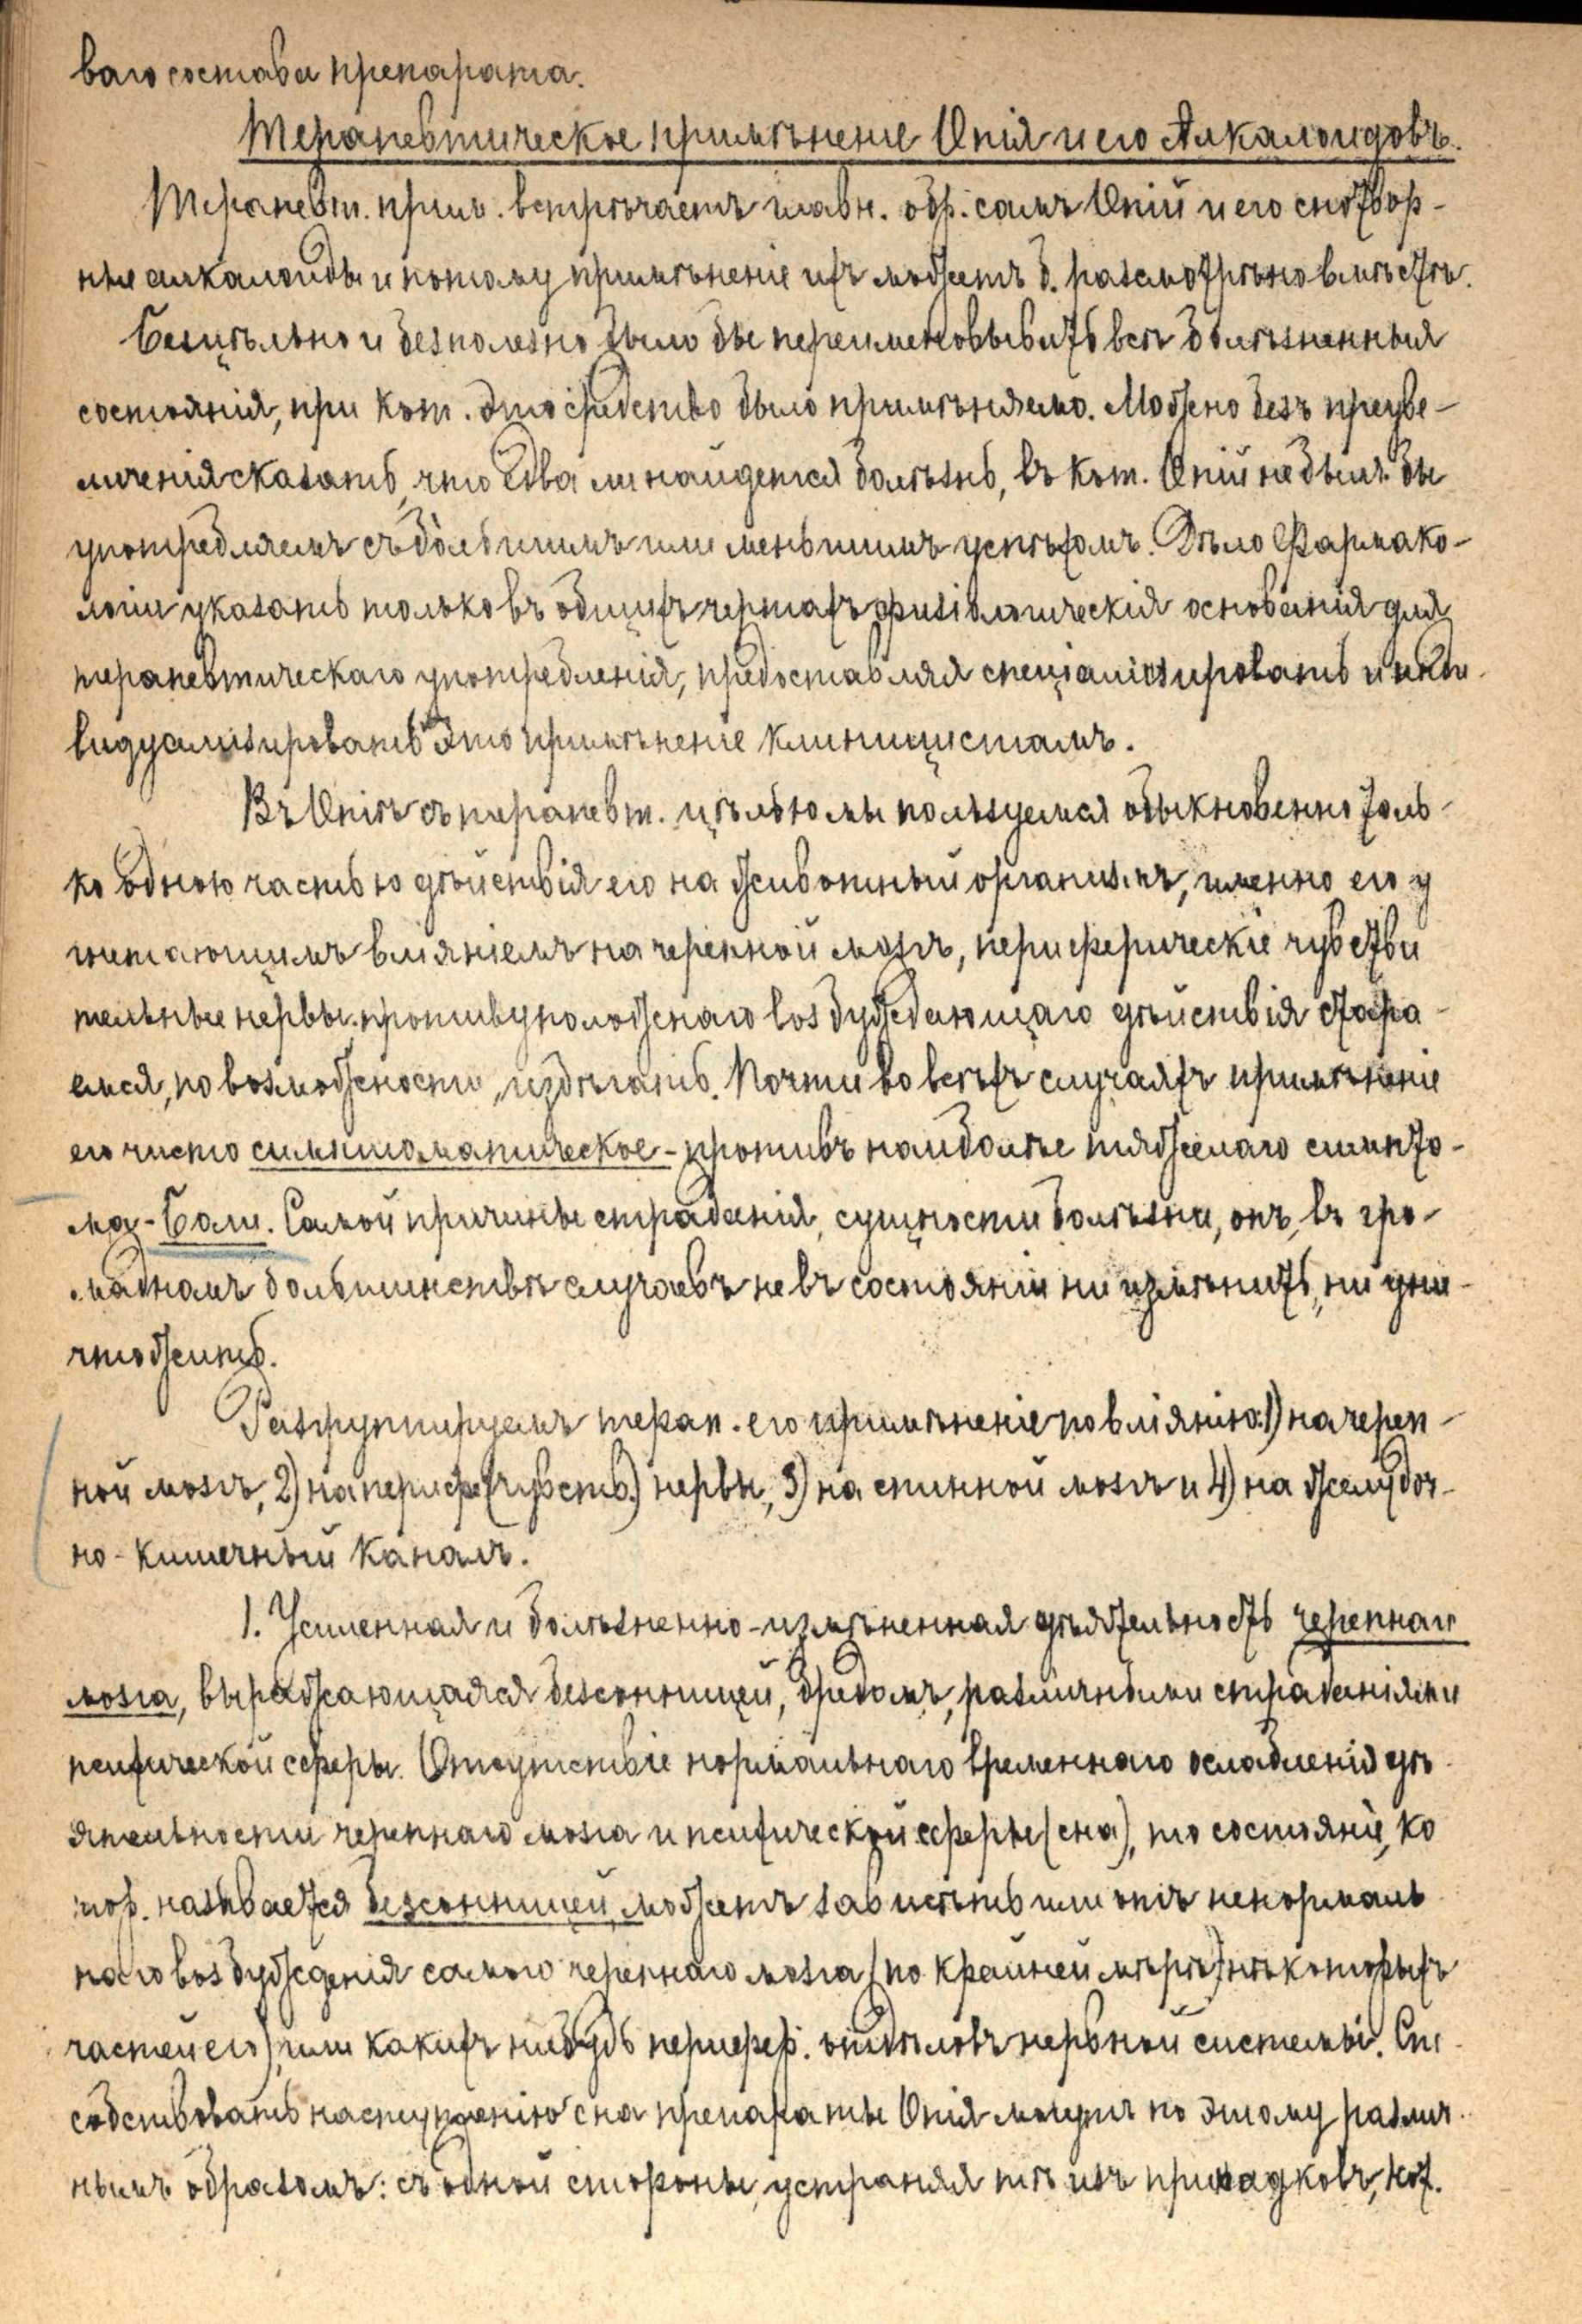 ваго состава препарата.
Терапевтическое примѣненіе Опія и его Алкалоидовъ.
Терапевт. прим. встрѣчаетъ главн. обр. самъ Опій и его снотвор-
ные алкалоиды и потому примѣненіе ихъ можетъ б. разсмотрѣно вмѣстѣ.
Безцѣльно и безполезно было бы переименовывать всѣ болѣзненныя
состоянія, при кот. это средство было примѣняемо. Можно безъ преуве-
личенія сказать, что едва ли найдется болѣзнь, въ кот. Опій не былъ бы
употребляемъ съ бо́льшимъ или меньшимъ успѣхомъ. Дѣло Фармако-
логіи указать только въ общихъ чертахъ физіологическія основанія для
терапевтическаго употребленія, предоставляя спеціализировать и инди-
видуализировать это примѣненіе клиницистамъ.
Въ Опіѣ съ терапевт. цѣлью мы пользуемся обыкновенно толь-
ко одною частью дѣйствія его на животный организмъ, именно его у
гнетающимъ вліяніемъ на черепной мозгъ, периферическіе чувстви
тельные нервы, противуположнаго возбуждающаго дѣйствія стара-
емся, по возможности, избѣгать. Почти во всѣхъ случаяхъ примѣненіе
его чисто симптоматическое - противъ наиболѣе тяжелаго симпто-
ма - Боли. Самой причины страданія, сущности болѣзни, онъ, въ гро-
мадномъ большинствѣ случаевъ не въ состояніи ни измѣнить, ни уни-
чтожить.
Разгруппируемъ терап. его примѣненіе по вліянію: 1) на череп-
ной мозгъ, 2) на периф. (чувств.) нервы, 3) на спинной мозгъ и 4) на желудоч-
но-кишечный каналъ.
1. Усиленная и болѣзненно-измѣненная дѣятельность черепнаго
мозга, выражающаяся безсонницей, бредомъ, различными страданіями
психической сферы. Отсутствіе нормальнаго временнаго ослабленія дѣ-
ятельности черепнаго мозга и психической сферы (сна), то состояніе, ко
тор. называется безсонницей, можетъ зависѣть или отъ ненормаль
наго возбужденія самого черепнаго мозга (по крайней мѣрѣ нѣкоторыхъ
частей его), или какихъ нибудь перифер. отдѣловъ нервной системы. Сп
собствовать наступленію сна препараты Опія могутъ по этому различ-
нымъ образомъ: съ одной стороны, устраняя тѣ изъ припадковъ, кот.